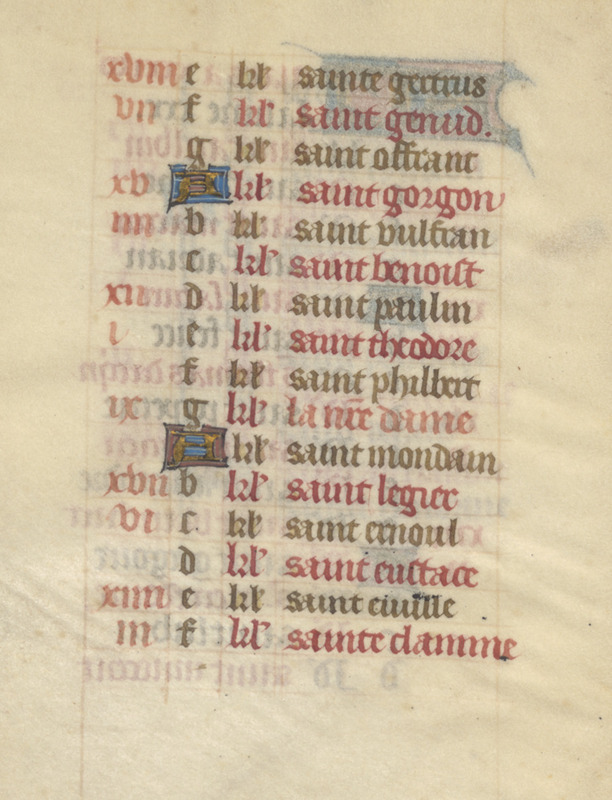 xviii e kl' sainte gertrus
vii f kl' saint genud.
g kl' saint offrant
xv A kl' saint gorgon
iiii b kl' saint vulfran
c kl' saint benoist
xii d kl' saint paulin
i e kl' saint theodore
f kl' saint philbert
ix g kl' la nre dame
A kl' saint mondain
xvii b kl' saint legier
vi c kl' saint ernoul
d kl' saint eustace
xiiii e kl' saint
iii f kl' sainte